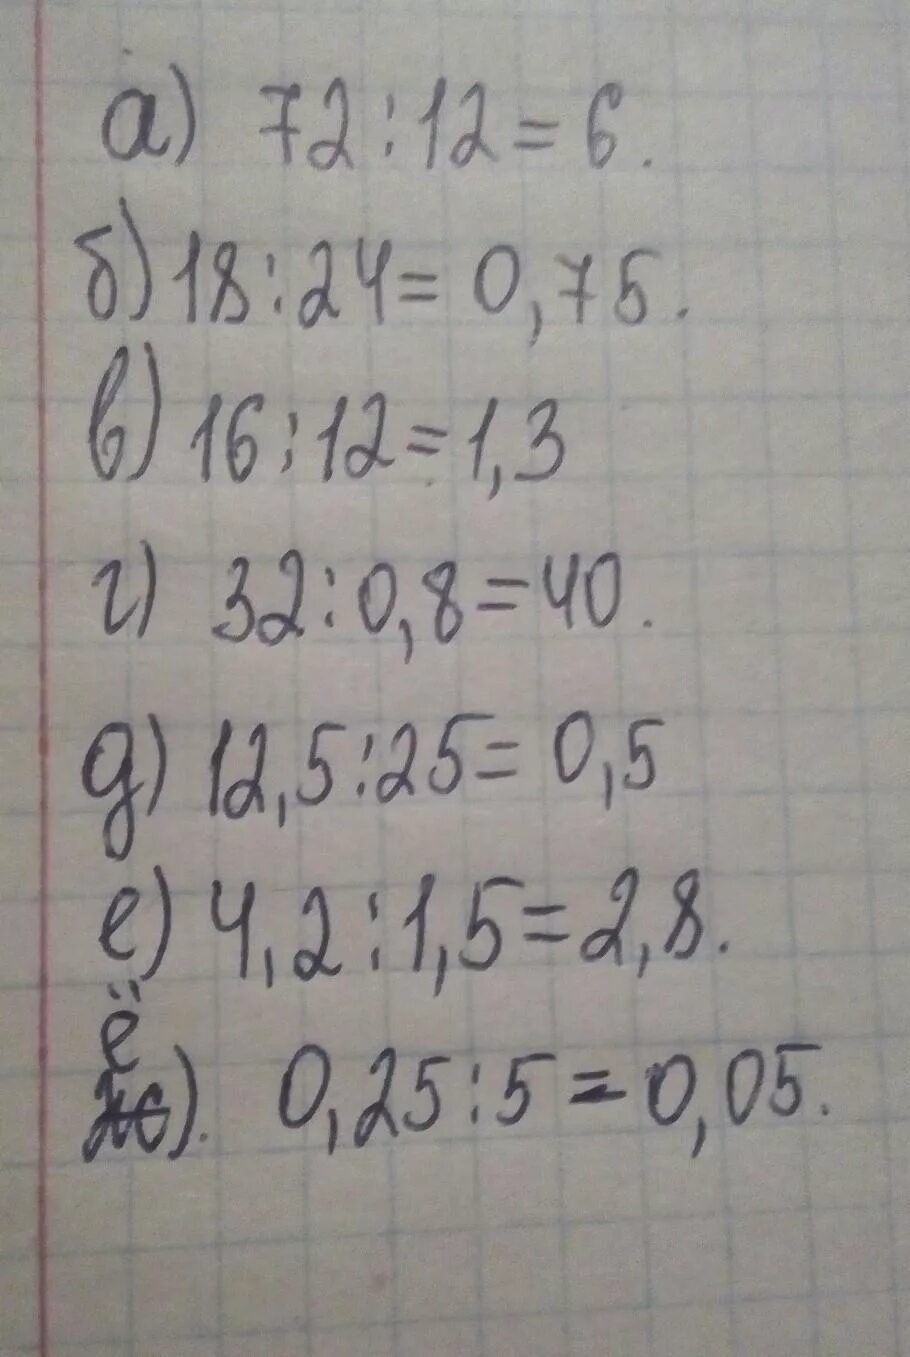 а) 72:12=6.
б) 18:24=0,75.
в) 16:12=1,3
г) 32:0,8=40.
д) 12,5:25=0,5
е) 4,2:1,5=2,8.
ё
ж). 0,25:5=0,05.